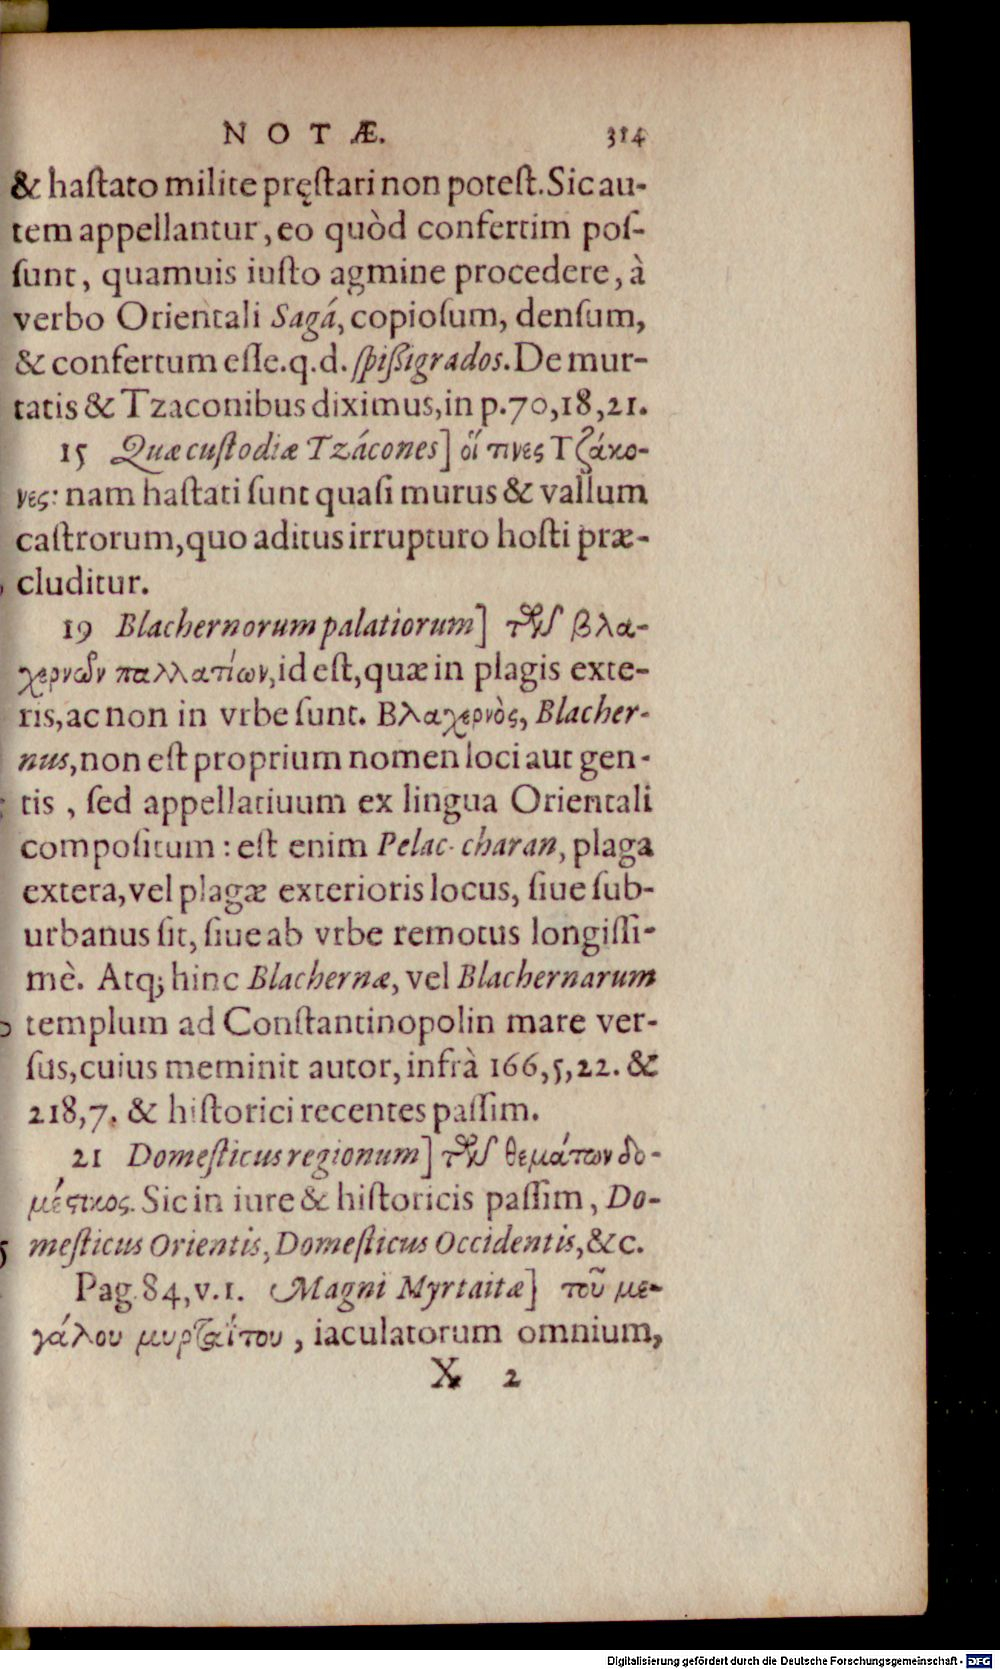 NOTÆ. 314
& haſtato milite pręſtari non poteſt. Sic au-
tem appellantur, eo quòd confertim poſ-
ſunt, quamuis iuſto agmine procedere, à
verbo Orientali Sagá, copioſum, denſum,
& confertum eſſe. q.d. ſpißigrados. De mur-
tatis & Tzaconibus diximus, in p.70,18,21.
15 Quæ cuſtodiæ Tzácones] οἵ τινες Τζάκο-
νες: nam haſtati ſunt quaſi murus & vallum
caſtrorum, quo aditus irrupturo hoſti præ-
cluditur.
19 Blachernorum palatiorum] τῶν βλα-
χερνῶν παλλατίων, id eſt, quæ in plagis exte-
ris, ac non in vrbe ſunt. Βλαχερνὸς, Blacher-
nus, non eſt proprium nomen loci aut gen-
tis, ſed appellatiuum ex lingua Orientali
compoſitum: eſt enim Pelac-charan, plaga
extera, vel plagæ exterioris locus, ſiue ſub-
urbanus ſit, ſiue ab vrbe remotus longiſſi-
mè. Atq; hinc Blachernæ, vel Blachernarum
templum ad Conſtantinopolin mare ver-
ſus, cuius meminit autor, infrà 166,5,22. &
218,7. & hiſtorici recentes paſſim.
21 Domeſticus regionum] τῶν θεμάτων δο-
μέστικος. Sic in iure & hiſtoricis paſſim, Do-
meſticus Orientis, Domeſticus Occidentis, &c.
Pag. 84, v.1. Magni Myrtaitæ] τοῦ με-
γάλου μυρταΐτου, iaculatorum omnium,
X 2
Digitalisierung gefördert durch die Deutsche Forschungsgemeinschaft - DFG